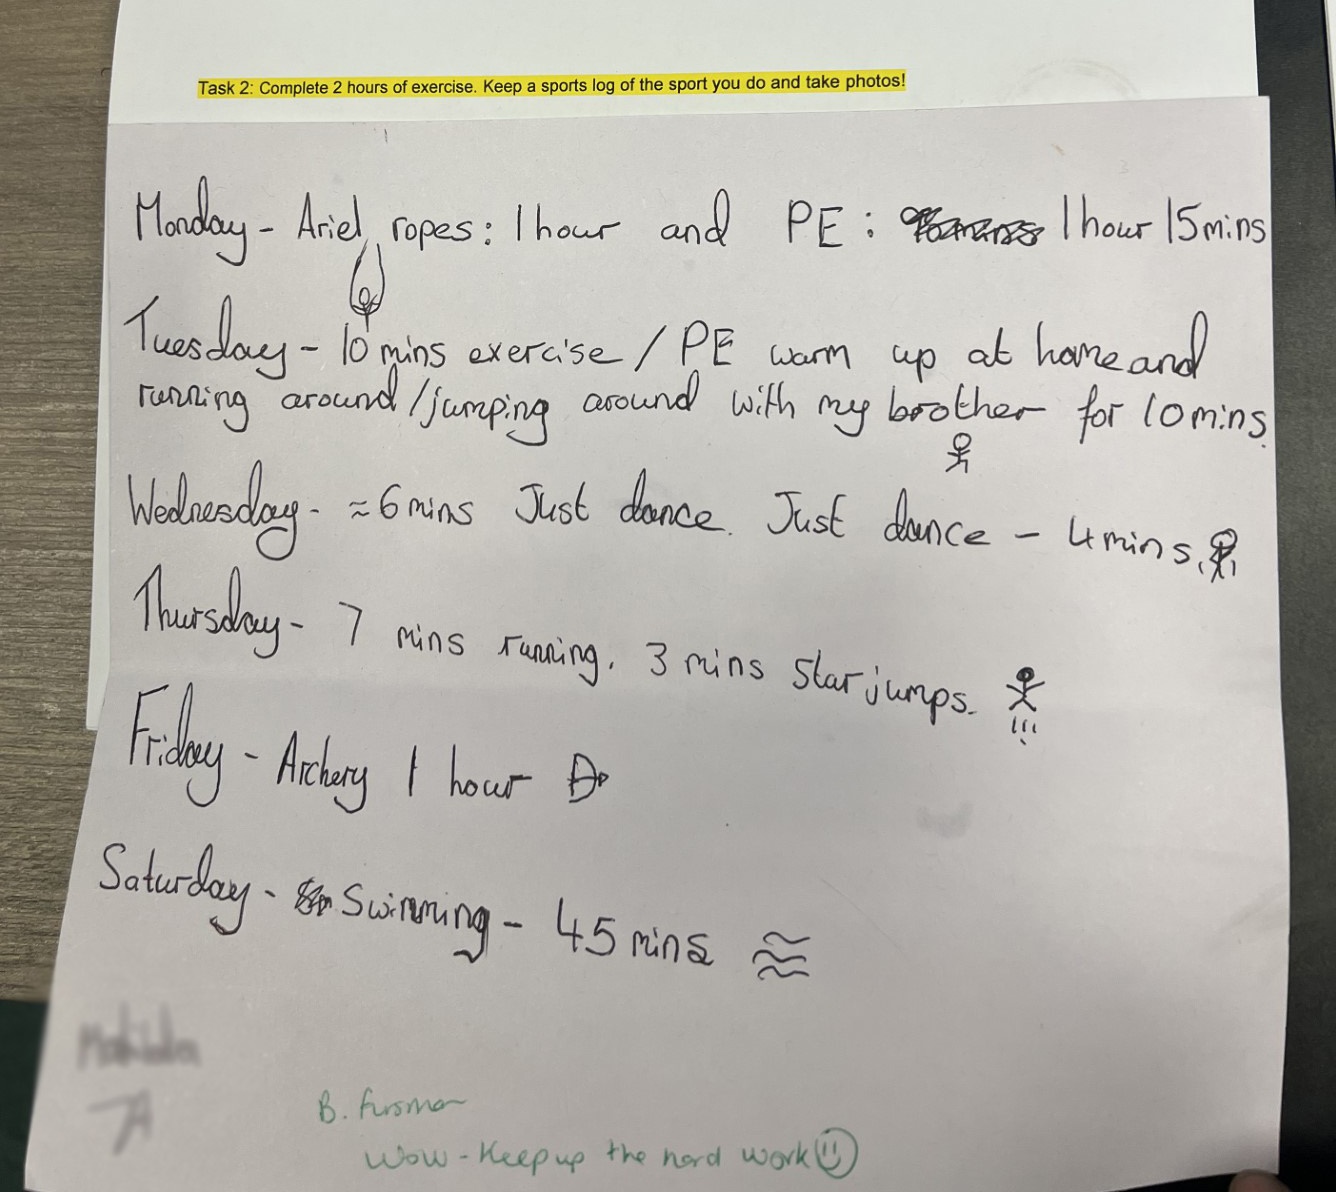 Task 2: Complete 2 hours of exercise. Keep a sports log of the sport you do and take photos!
Monday - Ariel ropes: 1 hour and PE: 1 hour 15 mins
Tuesday - 10 mins exercise / PE warm up at home and
running around / jumping around with my brother for 10 mins.
Wednesday - ≈ 6 mins Just dance. Just dance - 4 mins.
Thursday - 7 mins running. 3 mins star jumps.
Friday - Archery 1 hour
Saturday - Swimming - 45 mins
B. Fursman
Wow - Keep up the hard work